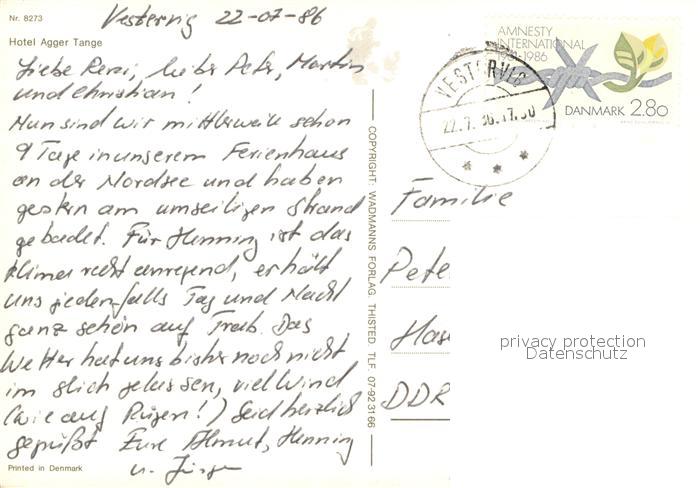 Nr. 8273
Vestervig 22-07-86
Hotel Agger Tange
Liebe Resi, lieber Peter, Martin
und Christian!
Nun sind wir mittlerweile schon
9 Tage in unserem Ferienhaus
an der Nordsee und haben
gestern am umseitigen Strand
gebadet. Für Henning ist das
Klima recht anregend, er hält
uns jedenfalls Tag und Nacht
ganz schön auf Trab. Das
Wetter hat uns bisher noch nicht
im Stich gelassen, viel Wind
(wie auf Rügen!) Seid herzlich
gegrüßt Eure Almut, Henning
u. Jürgen
Printed in Denmark
COPYRIGHT: WADMANNS FORLAG. THISTED. TLF. 07-92 31 66
AMNESTY
INTERNATIONAL
1961-1986
DANMARK 2.80
VESTERVIG
22.7.86.17.30
Familie
Pete
Has
DDR
privacy protection
Datenschutz